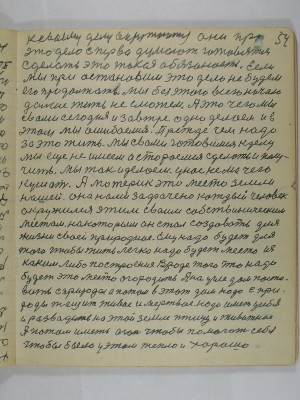 кевашу делу окружашу они при 54
это дело сперва думают готовятся
сделать это такая обязаность. Если
мы приостановим это дело не будем
его продолжать. Мы без этого весь начало
дальше жить не сможем. А это чего мы
с вами сегодня и завтра одно делаем и в
этом мы ошибаемся. Прежде чем надо
за это жить. Мы с вами готовимся к делу
мы еще не имеем а стараемся сделать и полу-
чить. Мы так и делаем у нас не мы чего
кушать. А материк это место земли
нашей. она нами задачено каждый человек
окружился этим своим собственическим
местом на котором он стал создавать для
жизни своей природные. Ему надо будет для
того чтобы жить легко надо будет место из
каким либо построение. Вроде того это надо
будет это место огородить. А на уже дом поста-
вить с природы а потом в этот дом надо с при-
роды тащит живое и мертвое надо иметь себя
и разводить на этой земле птицу и животное
А потом иметь огонь чтобы помогать себя
чтобы было у этом тепло и хорошо.